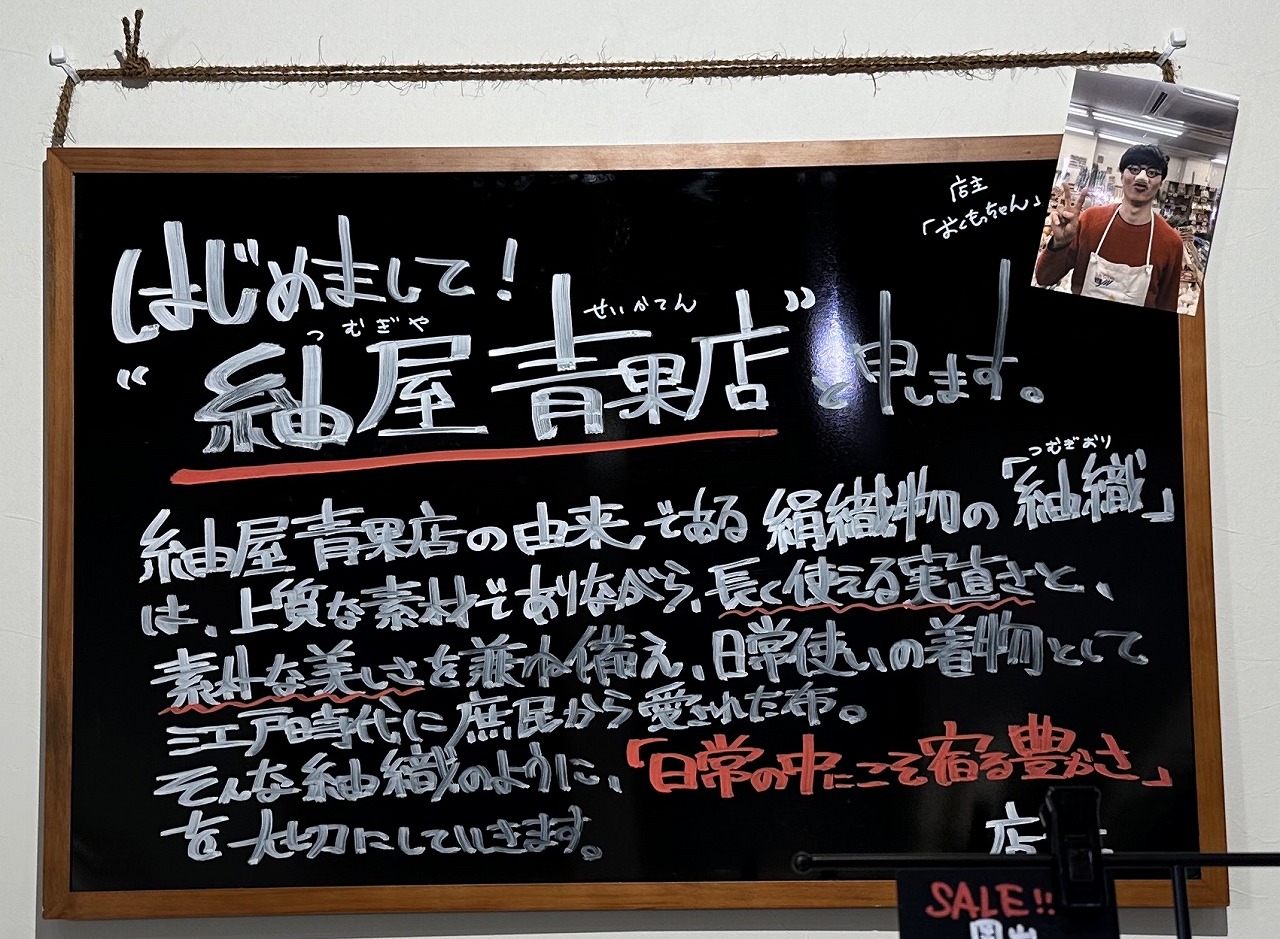 店主
「おくもっちゃん」
はじめまして！
つむぎや せいかてん
“紬屋 青果店”と申します。
つむぎおり
紬屋青果店の由来である 絹織物の「紬織」
は、上質な素材でありながら、長く使える実直さと、
素朴な美しさを兼ね備え、日常使いの着物として
江戸時代に庶民から愛された布。
そんな紬織のように、「日常の中にこそ宿る豊かさ」
を大切にしていきます。
店
SALE!!